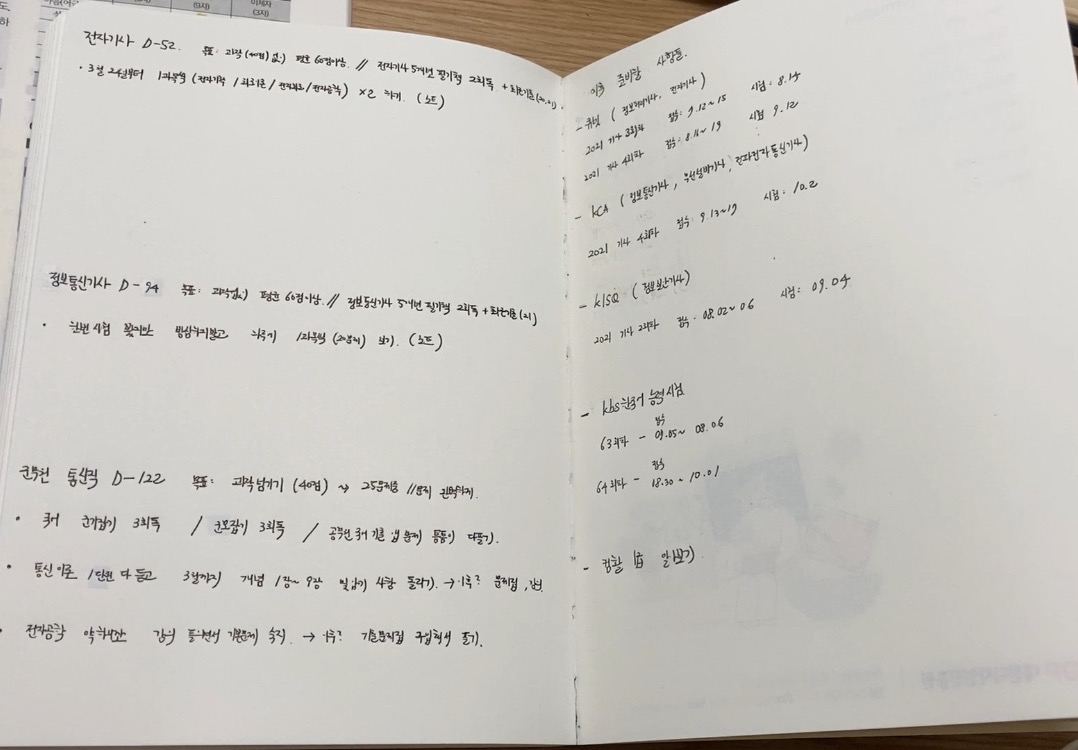 전자기사 D-52. 목표: 과락(40점) 없이 평균 60점이상. // 전자기사 5개년 필기책 2회독 + 최근기출(20,21).
· 3월 2일부터 1과목씩 (전자기학 / 회로이론 / 전자회로 / 전자공학) ×2 하기. (노트)
정보통신기사 D-94 목표: 과락없이 평균 60점이상. // 정보통신기사 5개년 필기책 2회독 + 최근기출(21)
· 한번 시험 봤지만 방심하지말고 1과목씩 (20문제) 보기. (노트)
군무원 통신직 D-122 목표: 과락넘기기 (40점) → 25문제중 11문제
· 국어 3회독 / 3회독 / 공무원 국어 기출 앱 문제 틈틈이 다풀기.
· 통신이론 1단원 다 듣고 3월까지 개념 1장~9장 4강 돌리기. → 이후? 문제집,
· 전자공학 약 강의 들으면서 기본문제 숙지. → 이후? 기출문제집 구입해서 풀기.
이후 준비할 사항들.
- 큐넷 (정보처리기사, 전자기사)
2021 기사 3회차 접수: 7.12~15 시험: 8.14
2021 기사 4회차 접수: 8.16~19 시험 9.12
- KCA (정보통신기사, 무선설비기사, 전파전자통신기사)
2021 기사 4회차 접수: 9.13~17 시험: 10.2
- KISQ (정보보안기사)
2021 기사 2회차 접수: 08.02~06 시험: 09.04
- kbs한국어 능력시험
접수
63회차 - 07.05~ 08.06
접수
64회차 - 18.30~ 10.01
- 컴활 1급 알아보기